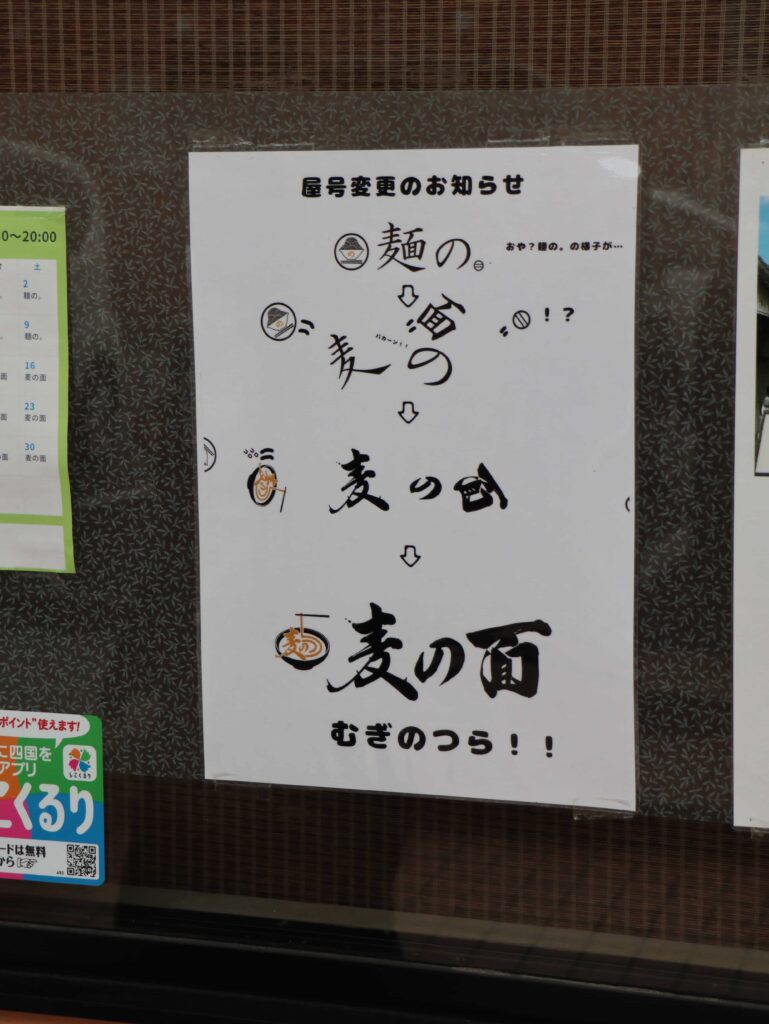 屋号変更のお知らせ
麺の。
おや?麺の。の様子が…
面
!?
麦 の
パカーン!!
麦 の 面
麦の
麦の面
むぎのつら!!
0〜20:00
土
2
麺の。
9
麺の。
16
麦の面
23
麦の面
30
麦の面
ポイント"使えます!
四国を
アプリ
しこくるり
くるり
ードは無料
から